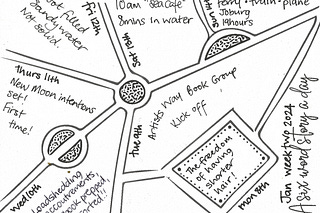 not filled
Sandy water
Not sealed.
Fri 12th
10am "Sea Cafe"
8mins in water
Sat 13th
ferry · train · plane
Joburg
19hours
thurs 11th
New Moon intentions
set!
First
time!
Artists Way Book Group
Kick off
tue 9th
wed 10th
Loadshedding
accoutrements
book prepped,
The freedom
of having
shorter
hair!
mon 8th
Jan week two 2024
A six word story a day